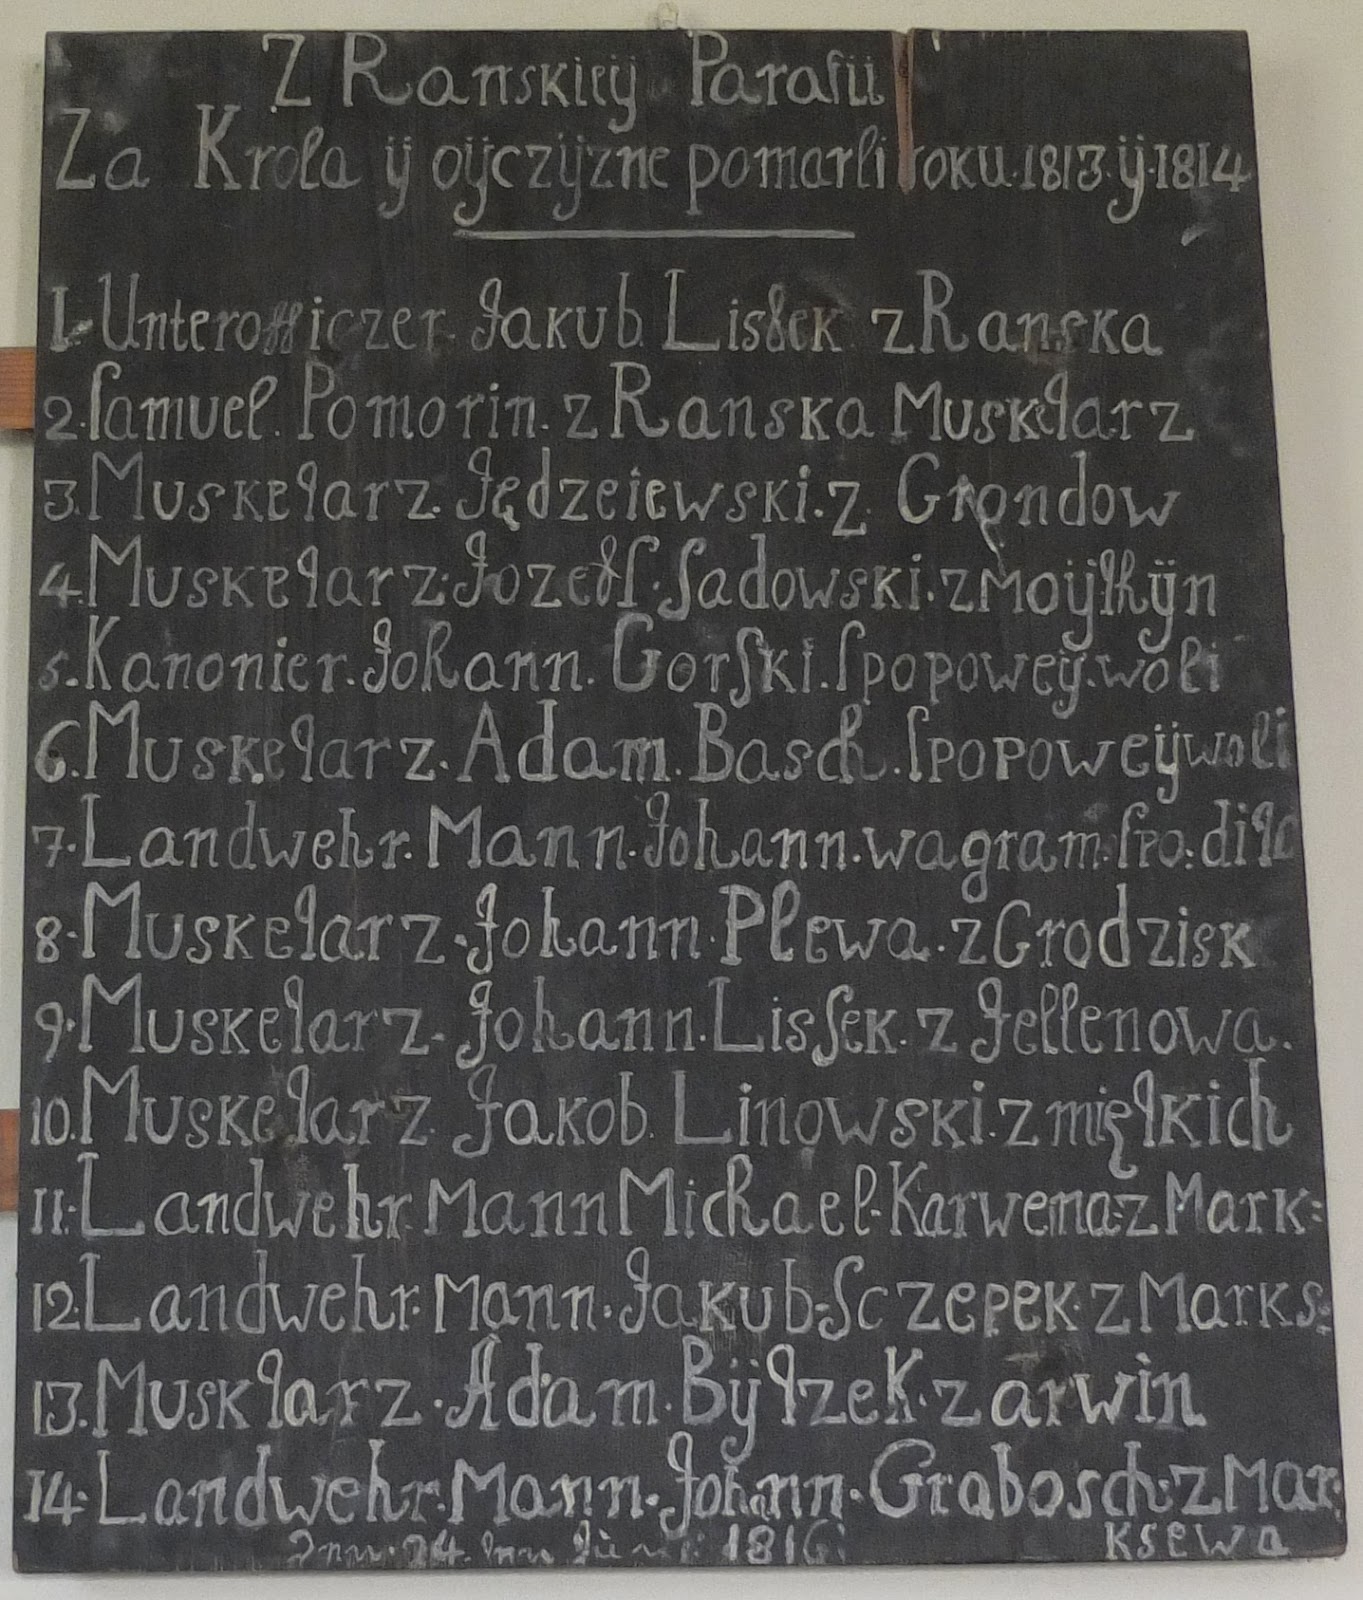 Z Ranskiey Parafii
Za Krola ÿ oÿczÿzne pomarli roku·1813·ÿ·1814
1. Unterofficzer. Jakub Lissek z Ranska
2. Samuel. Pomorin. z Ranska Musketarz
3. Musketarz. Jędzeiewski. z. Grondow
4. Musketarz. Jozeff. Sadowski. z Moÿtkÿn
5. Kanonier. Johann. Gorski. Spopoweÿ. woli
6. Musketarz. Adam. Basch. Spopoweÿ woli
7. Landwehr. Mann. Johann. wagram. Spo:
8. Musketarz. Johann. Plewa. z Grodzisk
9. Musketarz. Johann. Lissek. z Jellenowa.
10. Musketarz. Jakob. Linowski. z miętkich
11. Landwehr. Mann Michael. Karwena z Mark:
12. Landwehr. Mann. Jakub Sczepek. z Marks:
13. Musktarz. Adam. Bÿtzek. z arwin
14. Landwehr. Mann. Johann. Grabosch. z Mar
24. 1816 ksewa